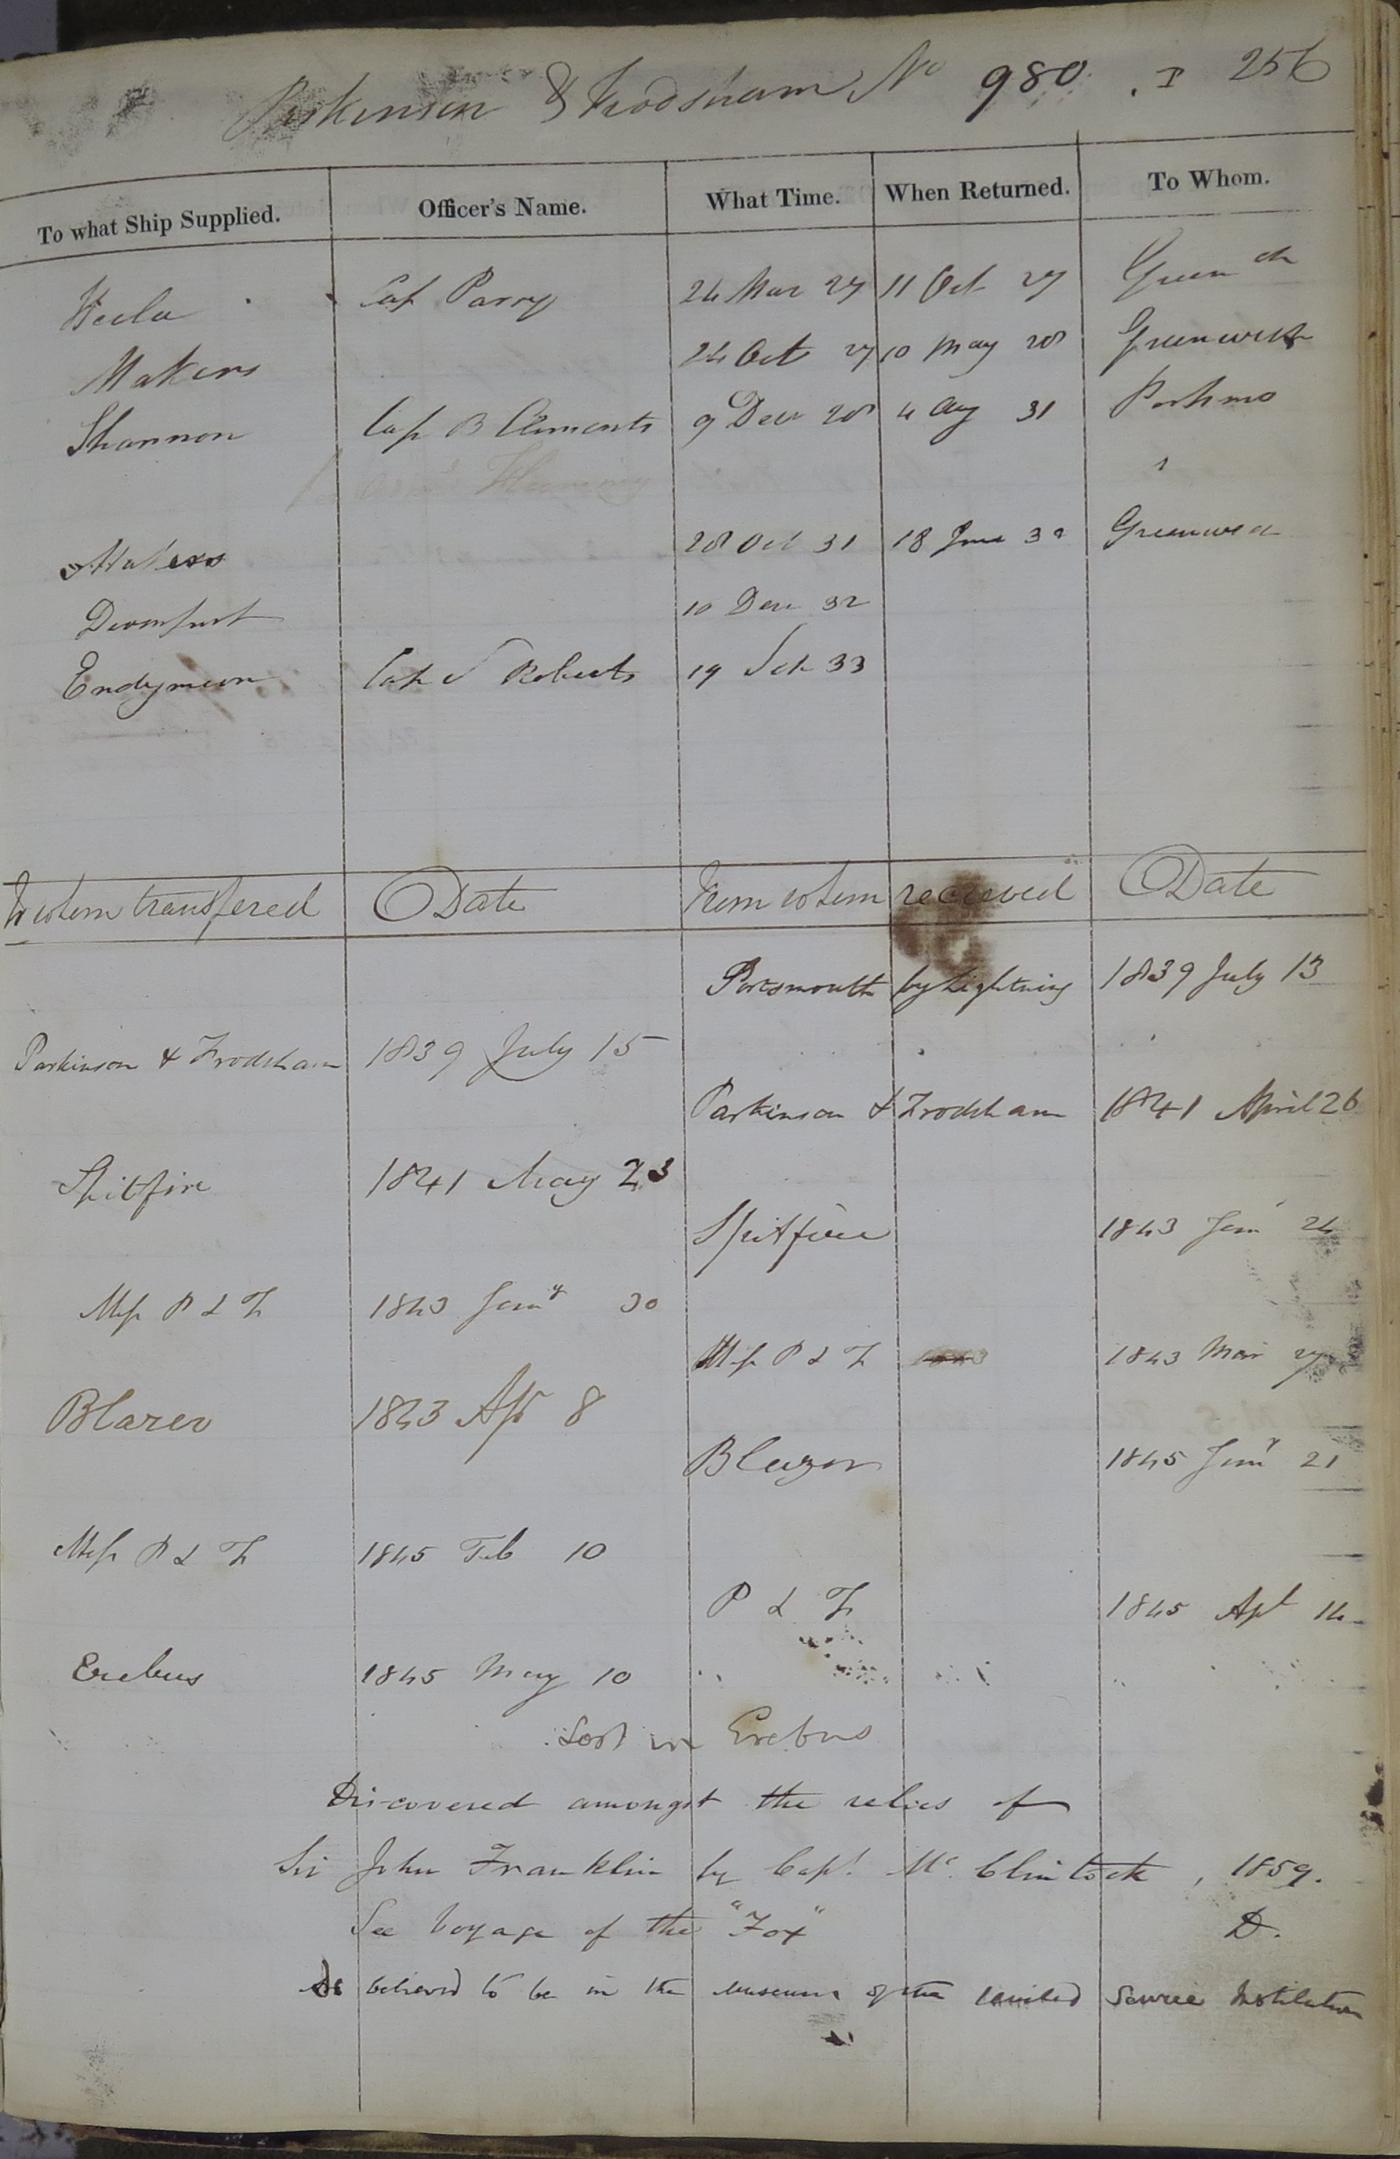 Parkinson & Frodsham No 980 . I 256
To what Ship Supplied. Officer's Name. What Time. When Returned. To Whom.
Hecla Cap Parry 24 Mar 27 11 Oct 27 Green ch
Makers 24 Oct 27 10 May 28 Greenwich
Shannon Cap B Clements 9 Decr 28 4 Aug 31 Portsmo
Makers 28 Oct 31 18 June 32 Greenwich
Devonport 10 Decr 32
Endymion Cap S Roberts 19 33
To whom transfered Date From whom recieved Date
Portsmouth by Lightning 1839 July 13
Parkinson & Frodsham 1839 July 15
Parkinson & Frodsham 1841 April 26
Spitfire 1841 May 23
Spitfire 1843 Jany 24
Mess P & F 1843 Jany 30
Mess P & F 1843 1843 Mar 27
Blazer 1843 Apr 8
Blazer 1845 Jany 21
Mess P & F 1845 Feb 10
P & F 1845 Apl 14
Erebus 1845 May 10
Lost in Erebus
Discovered amongst the relics of
Sir John Franklin by Capt. Mc Clintock, 1859.
See Voyage of the "Fox" D.
Is believed to be in the museum of the United Service Institution